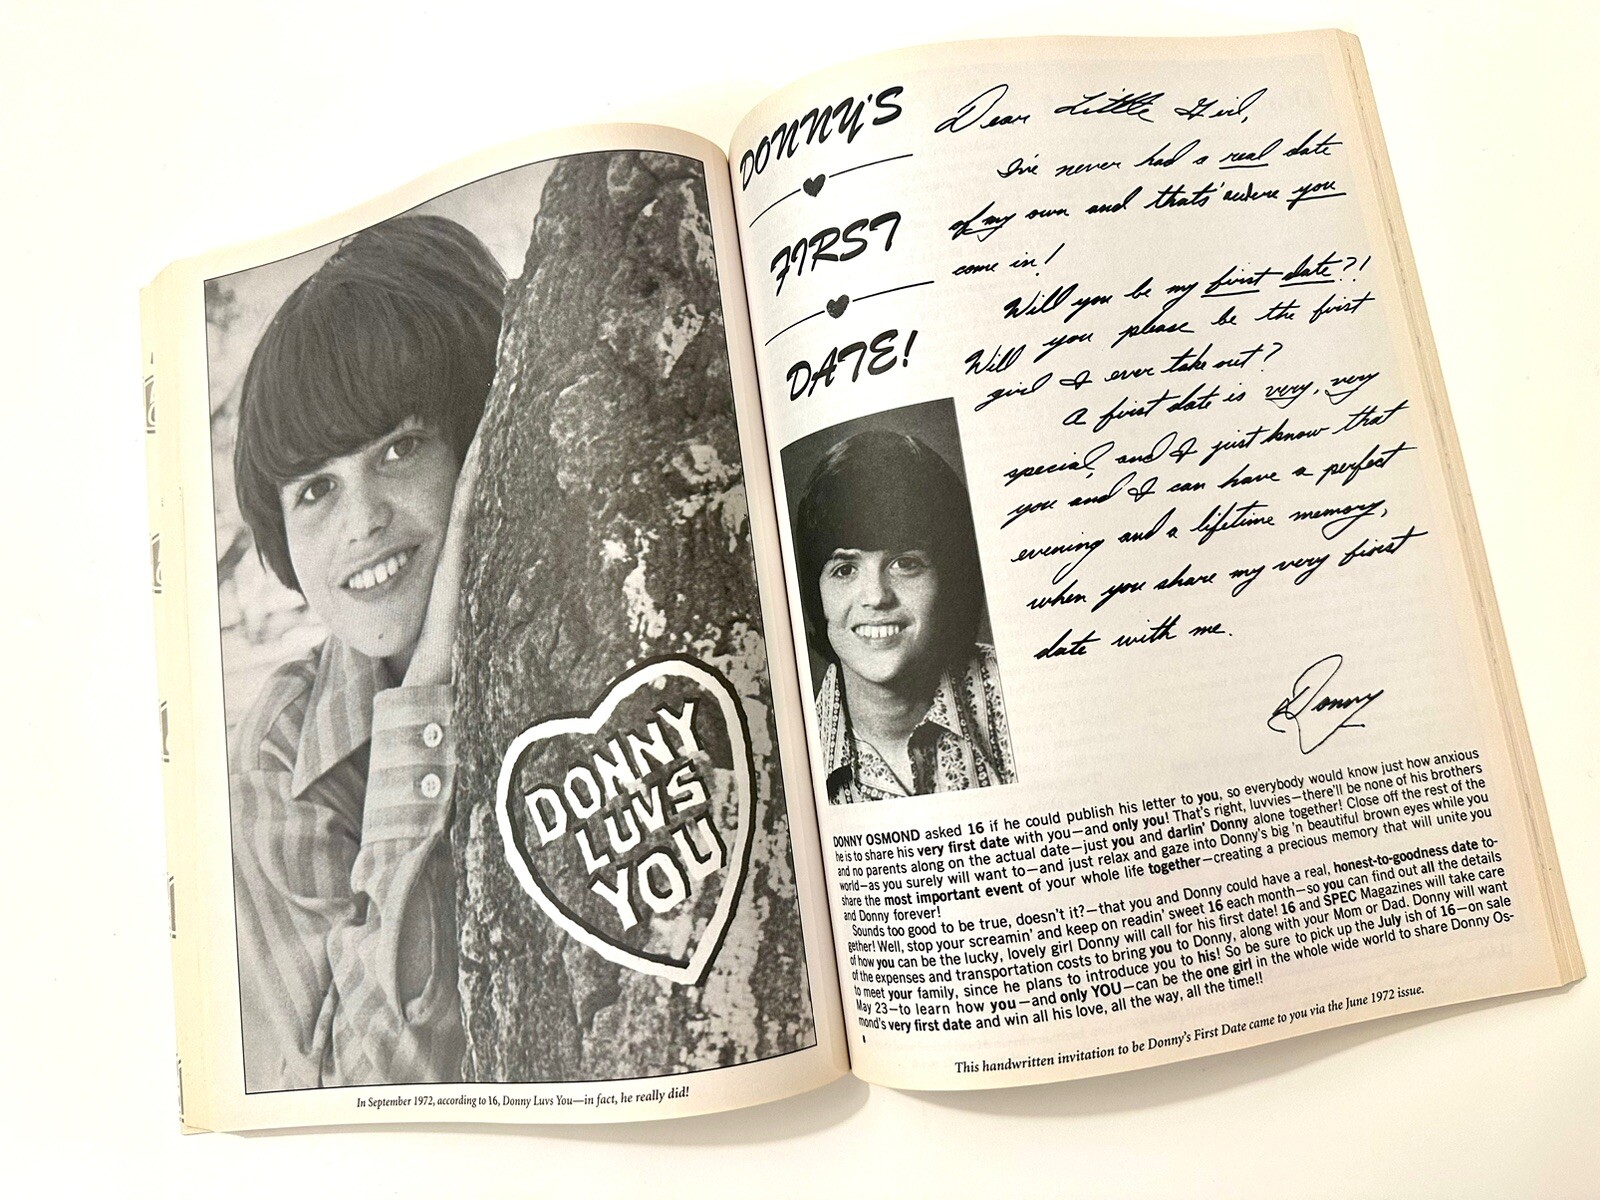 DONNY
LUVS
YOU
In September 1972, according to 16, Donny Luvs You—in fact, he really did!
DONNY'S
FIRST
DATE!
Dear Little Girl,
I've never had a real date
of my own and thats' where you
come in!
Will you be my first date?!
Will you please be the first
girl I ever take out?
A first date is very, very
special, and I just know that
you and I can have a perfect
evening and a lifetime memory,
when you share my very first
date with me.
Donny
DONNY OSMOND asked 16 if he could publish his letter to you, so everybody would know just how anxious
he is to share his very first date with you—and only you! That's right, luvvies—there'll be none of his brothers
and no parents along on the actual date—just you and darlin' Donny alone together! Close off the rest of the
world—as you surely will want to—and just relax and gaze into Donny's big 'n beautiful brown eyes while you
share the most important event of your whole life together—creating a precious memory that will unite you
and Donny forever!
Sounds too good to be true, doesn't it?—that you and Donny could have a real, honest-to-goodness date to-
gether! Well, stop your screamin' and keep on readin' sweet 16 each month—so you can find out all the details
of how you can be the lucky, lovely girl Donny will call for his first date! 16 and SPEC Magazines will take care
of the expenses and transportation costs to bring you to Donny, along with your Mom or Dad. Donny will want
to meet your family, since he plans to introduce you to his! So be sure to pick up the July ish of 16—on sale
May 23—to learn how you—and only YOU—can be the one girl in the whole wide world to share Donny Os-
mond's very first date and win all his love, all the way, all the time!!
8
This handwritten invitation to be Donny's First Date came to you via the June 1972 issue.